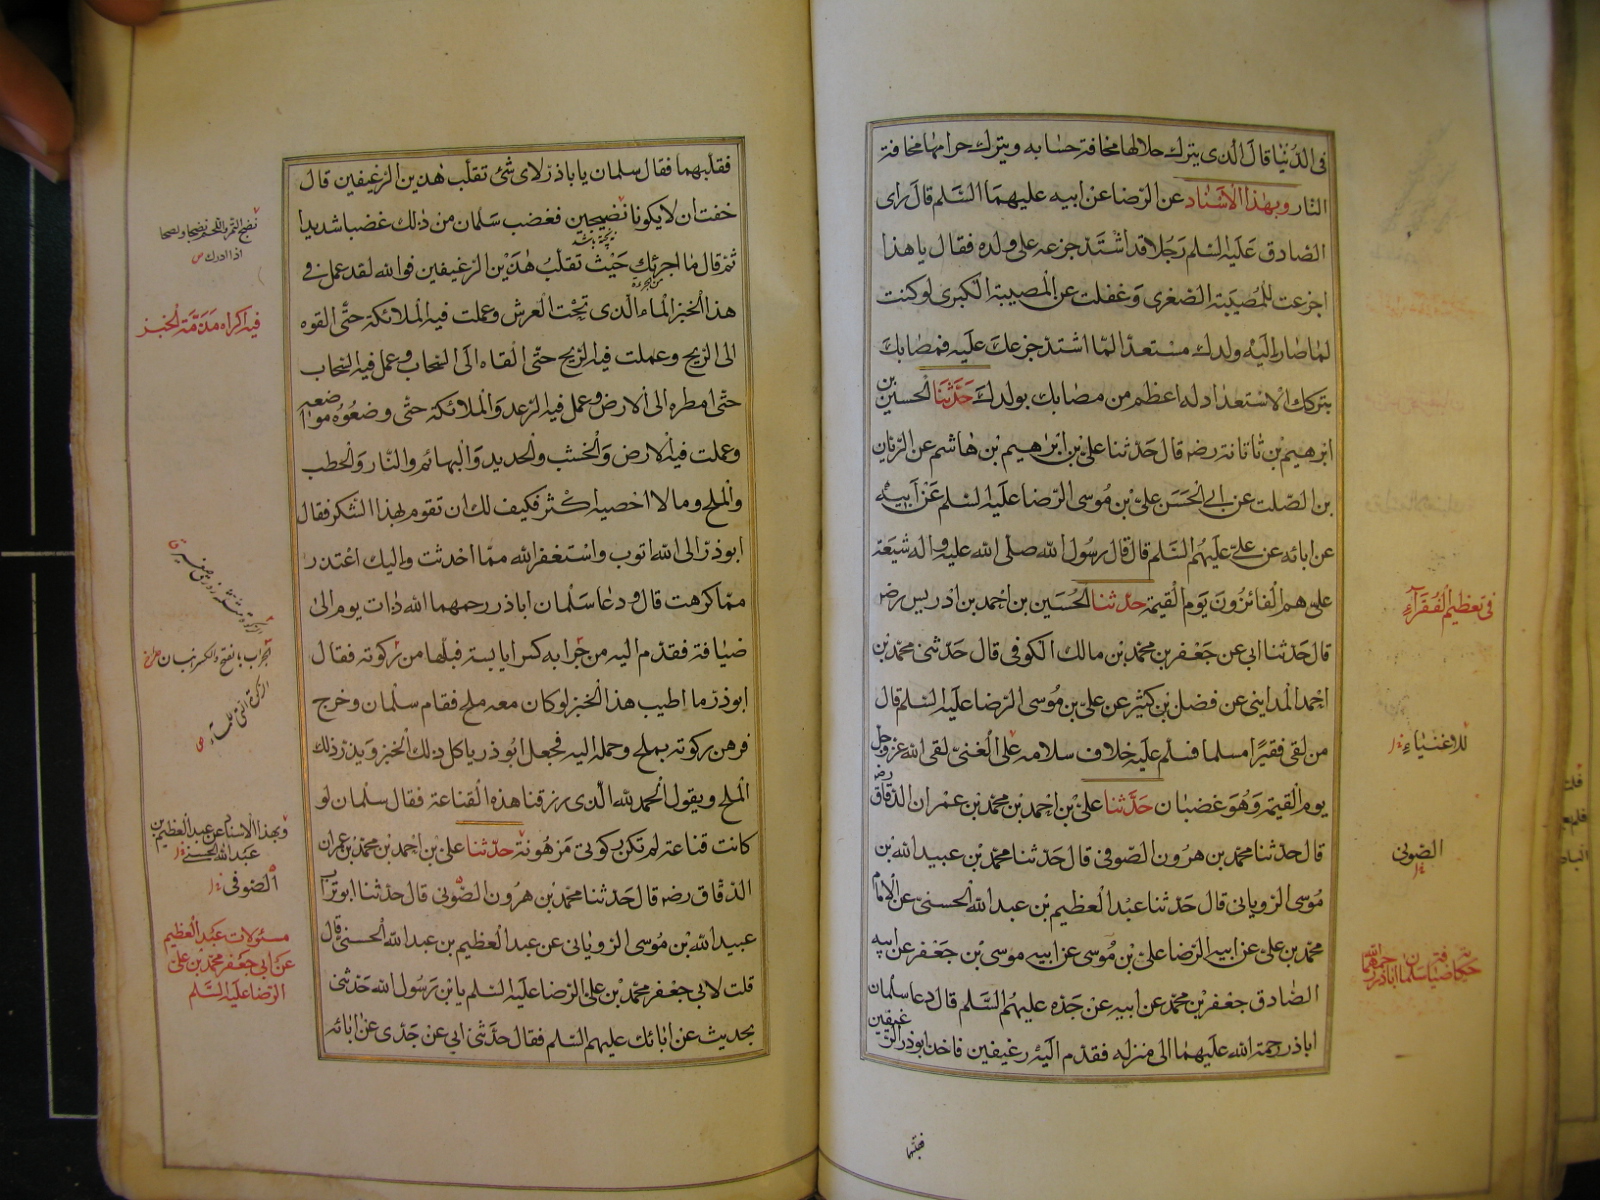 فى الدُنيا قال الذى يترك حلالها مخافة حسابه ويترك حرامها مخافة
النار وبهذا الاسناد عن الرضا عن ابيه عليهما السلم قال راى
الصادق عليه السلم رجلا قد اشتد جزعه على ولده فقال يا هذا
اجزعت للمصيبة الصغرى وغفلت عن المصيبة الكبرى لو كنت
لما صار اليه ولدك مستعدا لما اشتد جزعك عليه فمصابك
بتركك الاستعداد له اعظم من مصابك بولدك حدثنا الحسين بن
ابرهيم بن ناتانه رضه قال حدثنا على بن ابرهيم بن هاشم عن الريان
بن الصلت عن ابى الحسن على بن موسى الرضا عليه السلم عن ابيه
عن ابائه عن على عليهم السلم قال قال رسول الله صلى الله عليه واله شيعة
على هم الفائزون يوم القيمة حدثنا الحسين بن احمد بن ادريس رضه
قال حدثنا ابى عن جعفر بن محمد بن مالك الكوفى قال حدثنى محمد بن
احمد المداينى عن فضل بن كثير عن على بن موسى الرضا عليه السلم قال
من لقى فقيرا مسلما فسلم عليه خلاف سلامه على الغنى لقى الله عز وجل
يوم القيمة وهو غضبان حدثنا على بن احمد بن محمد بن عمران الدقاق رضه
قال حدثنا محمد بن هرون الصوفى قال حدثنا محمد بن عبيد الله بن
موسى الرويانى قال حدثنا عبد العظيم بن عبد الله الحسنى عن الامام
محمد بن على عن ابيه الرضا على بن موسى عن ابيه موسى بن جعفر عن ابيه
الصادق جعفر بن محمد عن ابيه عن جده عليهم السلم قال دعا سلمان
اباذر رحمة الله عليهما الى منزله فقدم اليه رغيفين فاخذ ابوذر الرغيفين
فقلبهما
فى تعظيم الفقرآء
للاغنياء
الصوفى
حكاية ضيافة سلمان اباذر رحمهما الله
فقلبهما فقال سلمان يا باذر لاى شئ تقلب هذين الرغيفين قال
خفت ان لا يكونا نضيجين فغضب سلمان من ذلك غضبا شديدا
ثم قال ما اجرئك حيث تقلب هذين الرغيفين فوالله لقد عمل فى
هذا الخبز الماء الذى تحت العرش وعملت فيه الملائكة حتى القوه
الى الريح وعملت فيه الريح حتى القاه الى السحاب وعمل فيه السحاب
حتى امطره الى الارض وعمل فيه الرعد والملائكة حتى وضعوه مواضعه
وعملت فيه الارض والخشب والحديد والبهائم والنار والحطب
والملح وما لا احصيه اكثر فكيف لك ان تقوم بهذا الشكر فقال
ابوذر الى الله اتوب واستغفر الله مما احدثت واليك اعتذر
مما كرهت قال ودعا سلمان اباذر رحمهما الله ذات يوم الى
ضيافة فقدم اليه من جرابه كسرا يابسة فبلها من ركوته فقال
ابوذر ما اطيب هذا الخبز لو كان معه ملح فقام سلمان وخرج
فرهن ركوته بملح وحمله اليه فجعل ابوذر ياكل ذلك الخبز ويذر ذلك
الملح ويقول الحمد لله الذى رزقنا هذه القناعة فقال سلمان لو
كانت قناعة لم تكن ركوتى مرهونة حدثنا على بن احمد بن محمد بن عمران
الدقاق رضه قال حدثنا محمد بن هرون الصوفى قال حدثنا ابو تراب
عبيد الله بن موسى الرويانى عن عبد العظيم بن عبد الله الحسنى قال
قلت لابى جعفر محمد بن على الرضا عليه السلم يابن رسول الله حدثنى
بحديث عن ابائك عليهم السلم فقال حدثنى ابى عن جدى عن ابائه
نضج الثمر واللحم نضجا ونضجا
اذا ادرك ص
فيه اكراه مذمة الخبز
وبهذا الاسناد عن عبد العظيم بن
عبد الله الحسنى
الصوفى
مسئولات عبد العظيم
عن ابى جعفر محمد بن على
الرضا عليه السلم